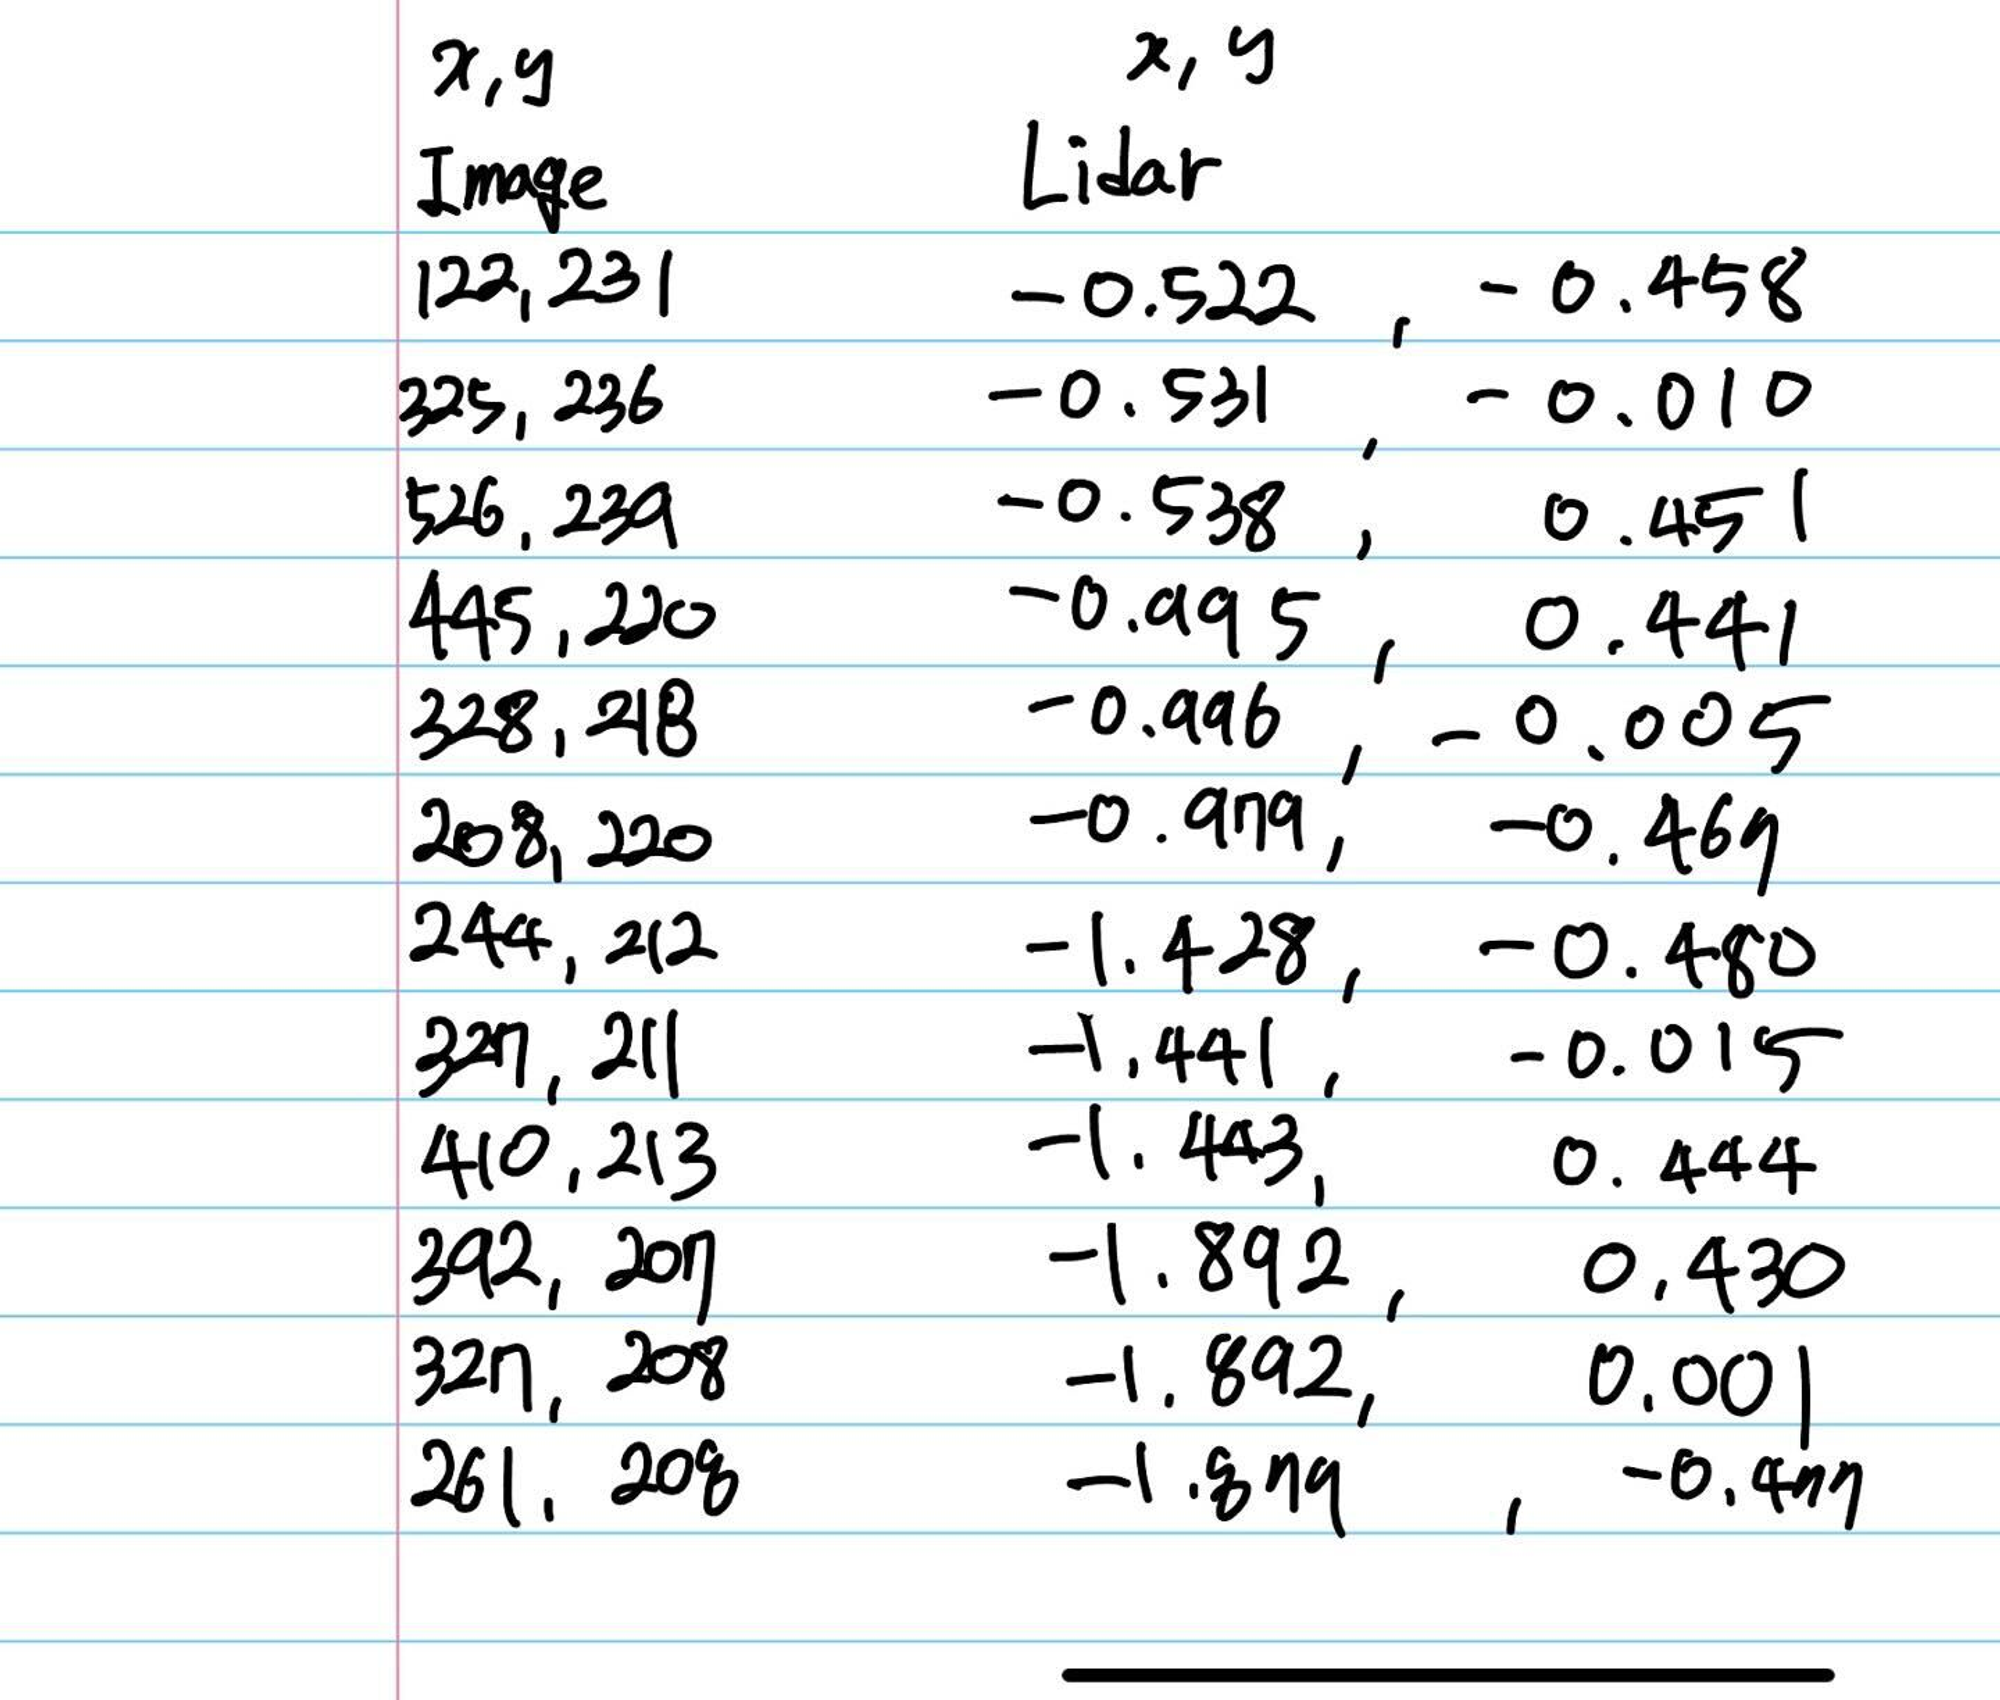 x, y x, y
Image Lidar
122, 231 -0.522, -0.458
325, 236 -0.531, -0.010
526, 239 -0.538, 0.451
445, 220 -0.995, 0.441
328, 218 -0.996, -0.005
208, 220 -0.979, -0.469
244, 212 -1.428, -0.480
327, 211 -1.441, -0.015
410, 213 -1.443, 0.444
392, 207 -1.892, 0.430
327, 208 -1.892, 0.001
261, 208 -1.879, -0.477